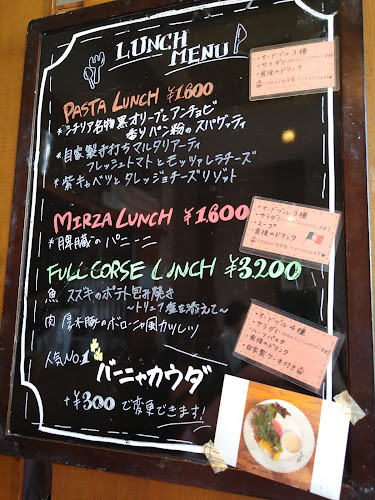 LUNCH
MENU
PASTA LUNCH ¥1.600
*シチリア名物 黒オリーブとアンチョビ
香りパン粉のスパゲッティ
*自家製手打ちマルタリアーティ
フレッシュトマトとモッツァレラチーズ
*紫キャベツとタレッジョチーズリゾット
・オードブル3種
・サラダ
・食後のドリンク
MIRZA LUNCH ¥1.600
*脾臓のパニーニ
・オードブル3種
・サラダ
・スープ
・食後のドリンク
FULL CORSE LUNCH ¥3.200
魚 スズキのポテト包み焼き
〜トリュフ塩を添えて〜
肉 豚のボローニャ風カツレツ
・オードブル4種
・サラダ
・食後のドリンク
・自家製ケーキ付き
人気No.1
バーニャカウダ
+¥300で変更できます!